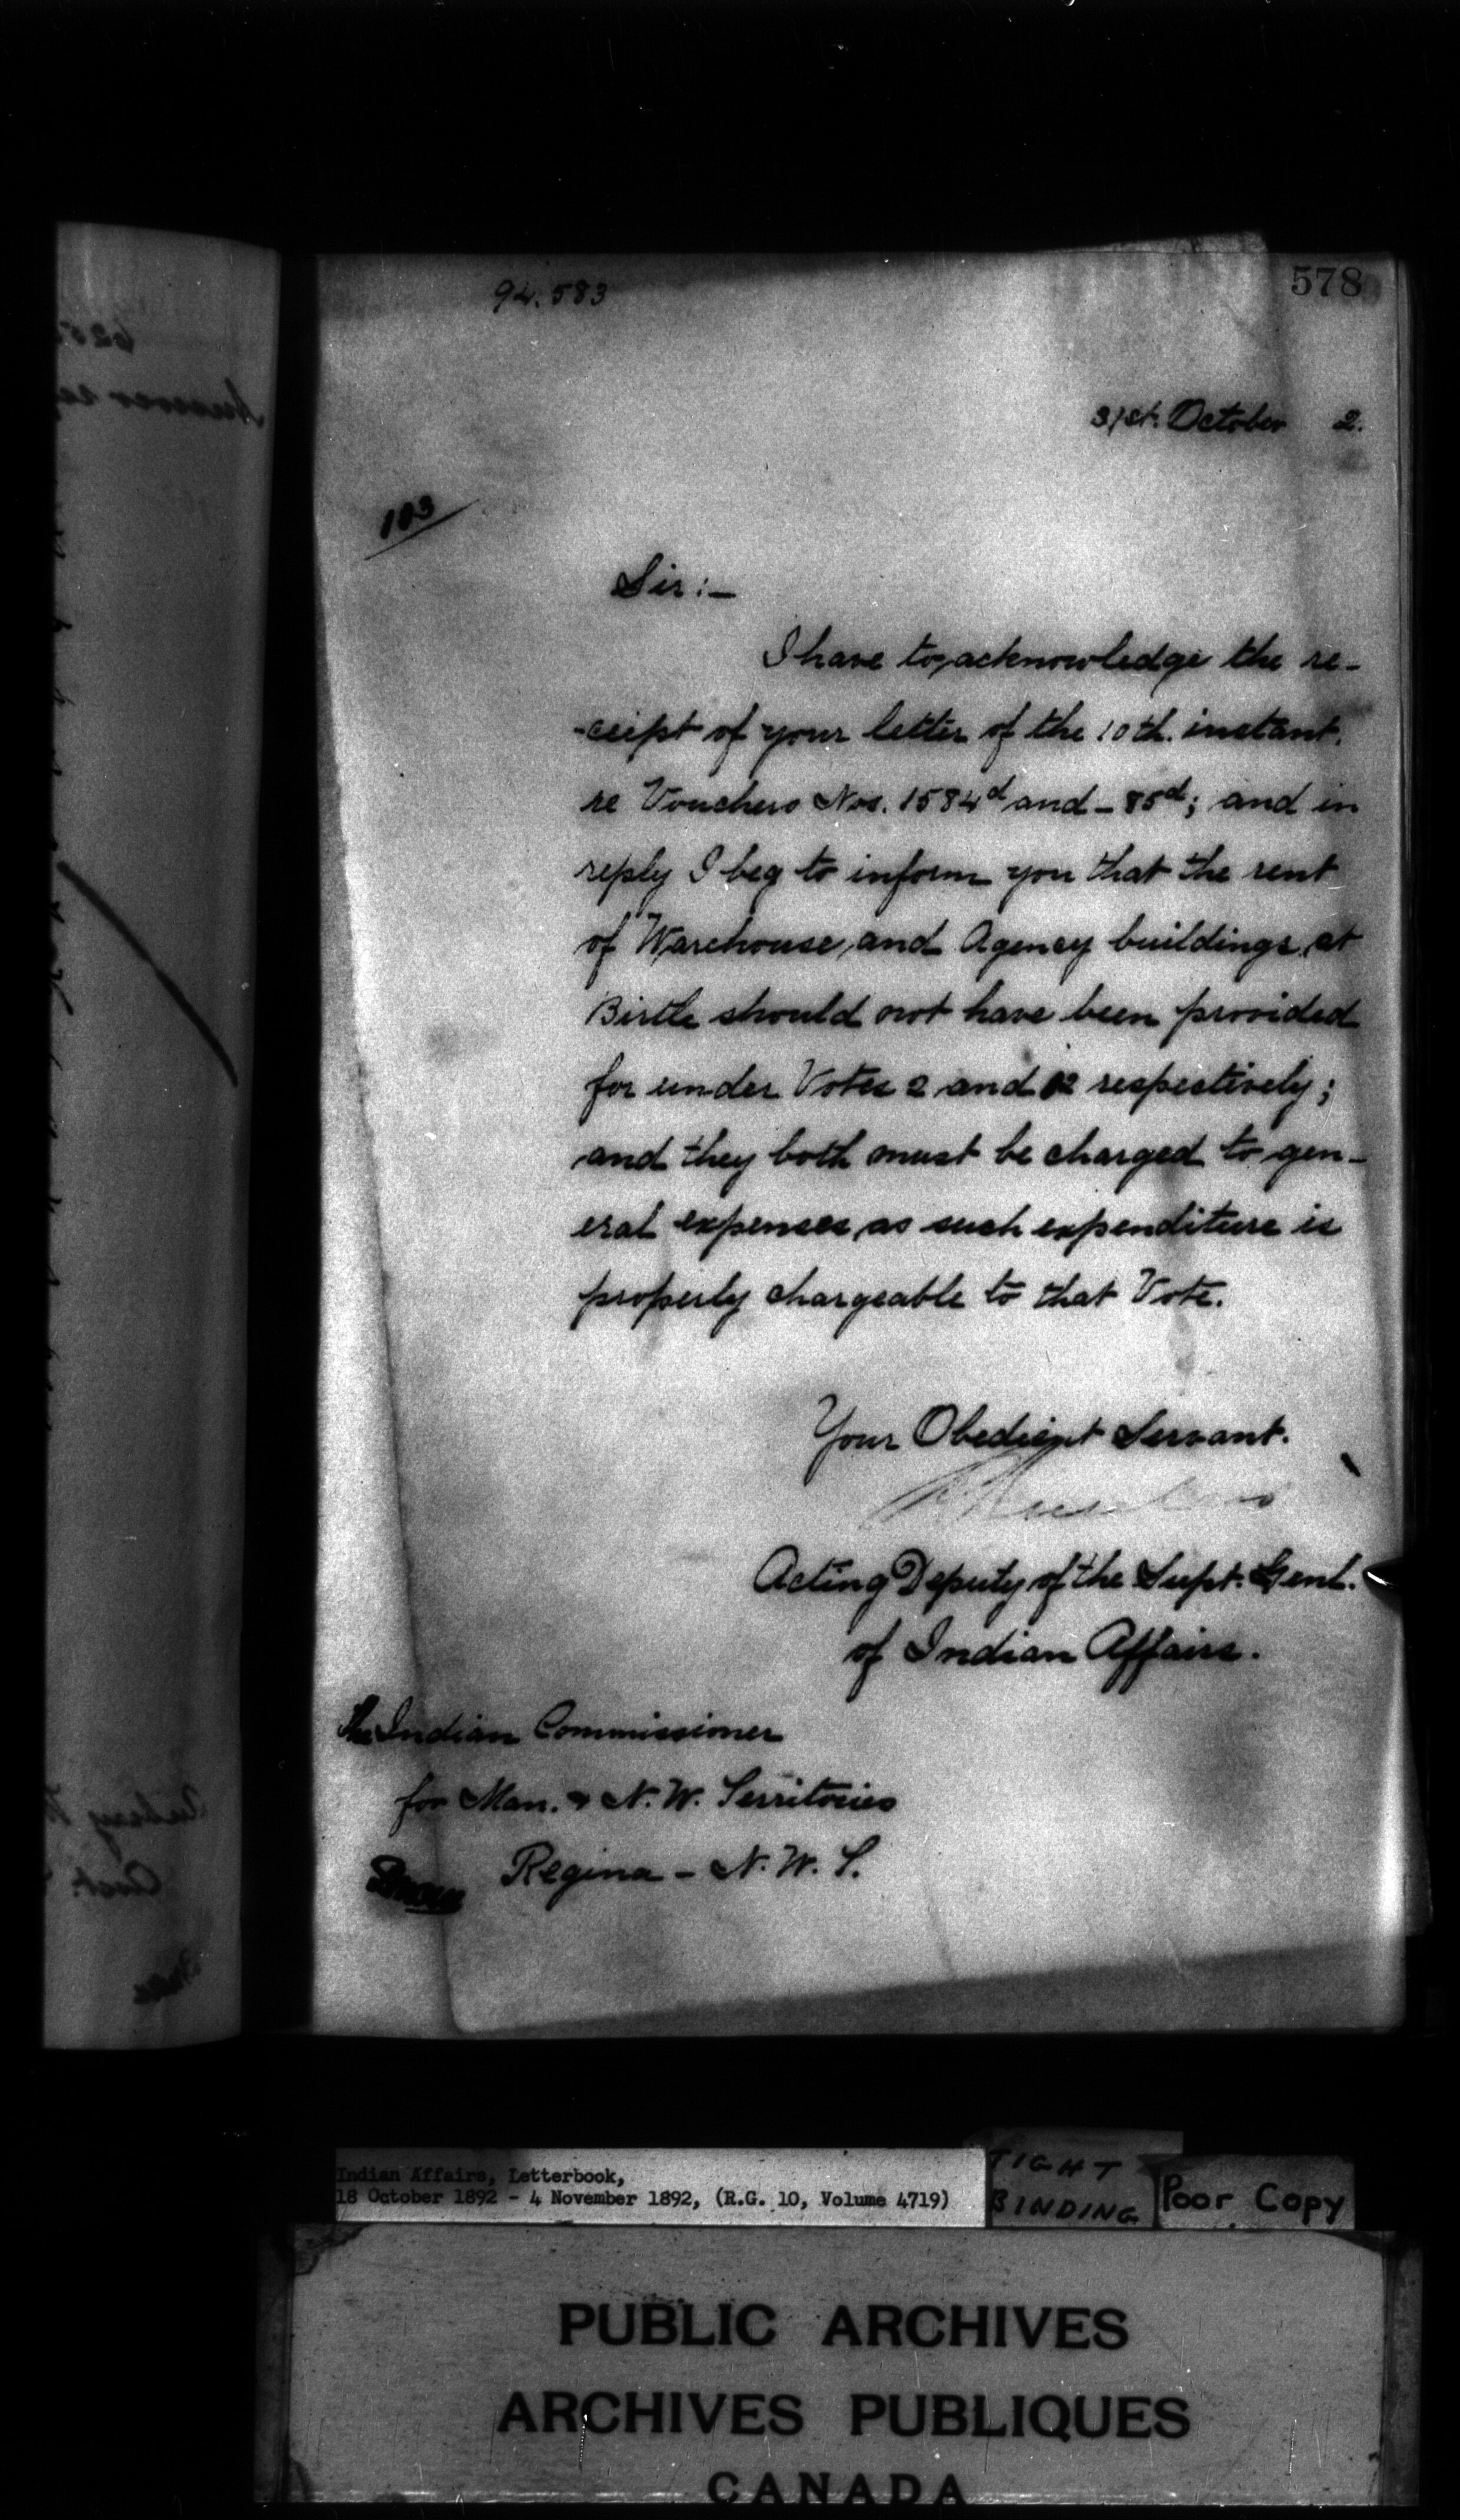 94.583
578
31st. October 2.
103
Sir:—
I have to acknowledge the re-
-ceipt of your letter of the 10th. instant.
re Vouchers Nos. 1584d and - 85d; and in
reply I beg to inform you that the rent
of Warehouse and Agency buildings at
Birtle should not have been provided
for under Votes 2 and 12 respectively;
and they both must be charged to gen-
eral expenses as such expenditure is
properly chargeable to that Vote.
Your Obedient Servant.
Acting Deputy of the Supt. Genl.
of Indian Affairs.
The Indian Commissioner
for Man. & N.W. Territories
Regina - N.W.T.
Indian Affairs, Letterbook,
18 October 1892 - 4 November 1892, (R.G. 10, Volume 4719)
TIGHT
BINDING
Poor Copy
PUBLIC ARCHIVES
ARCHIVES PUBLIQUES
CANADA